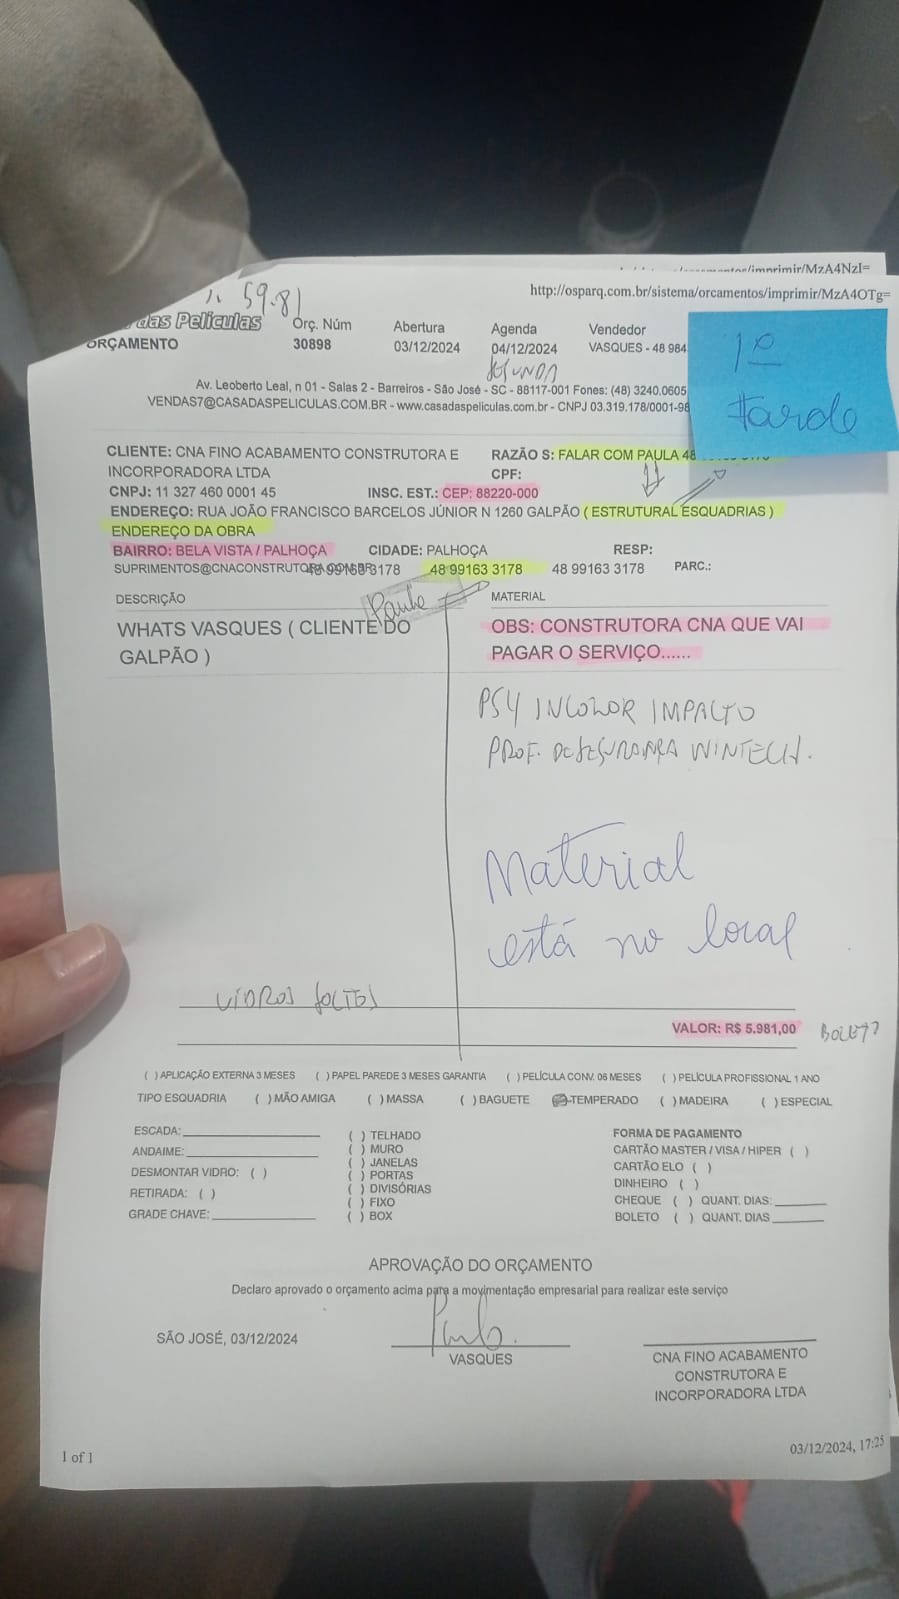 /imprimir/MzA4NzI=
http://osparq.com.br/sistema/orcamentos/imprimir/MzA4OTg=
59.81
das Películas
ORÇAMENTO
Orç. Núm
30898
Abertura
03/12/2024
Agenda
04/12/2024
SEGUNDA
Vendedor
VASQUES - 48 984
1º
tarde
Av. Leoberto Leal, n 01 - Salas 2 - Barreiros - São José - SC - 88117-001 Fones: (48) 3240.0605
VENDAS7@CASADASPELICULAS.COM.BR - www.casadaspeliculas.com.br - CNPJ 03.319.178/0001-98
CLIENTE: CNA FINO ACABAMENTO CONSTRUTORA E
INCORPORADORA LTDA
RAZÃO S: FALAR COM PAULA 48
CPF:
CNPJ: 11 327 460 0001 45
INSC. EST.: CEP: 88220-000
ENDEREÇO: RUA JOÃO FRANCISCO BARCELOS JÚNIOR N 1260 GALPÃO ( ESTRUTURAL ESQUADRIAS )
ENDEREÇO DA OBRA
BAIRRO: BELA VISTA / PALHOÇA
CIDADE: PALHOÇA
RESP:
SUPRIMENTOS@CNACONSTRUTORA 48 99163 3178
48 99163 3178
48 99163 3178
PARC.:
DESCRIÇÃO
MATERIAL
WHATS VASQUES ( CLIENTE DO
GALPÃO )
OBS: CONSTRUTORA CNA QUE VAI
PAGAR O SERVIÇO......
PS4 INCOLOR IMPACTO
PROF. DE SEGURANÇA WINTECH.
Material
está no local
VIDROS SOLTOS
VALOR: R$ 5.981,00
BOLETO
( ) APLICAÇÃO EXTERNA 3 MESES ( ) PAPEL PAREDE 3 MESES GARANTIA ( ) PELÍCULA CONV. 06 MESES ( ) PELÍCULA PROFISSIONAL 1 ANO
TIPO ESQUADRIA ( ) MÃO AMIGA ( ) MASSA ( ) BAGUETE TEMPERADO ( ) MADEIRA ( ) ESPECIAL
ESCADA:
ANDAIME:
DESMONTAR VIDRO: ( )
RETIRADA: ( )
GRADE CHAVE:
( ) TELHADO
( ) MURO
( ) JANELAS
( ) PORTAS
( ) DIVISÓRIAS
( ) FIXO
( ) BOX
FORMA DE PAGAMENTO
CARTÃO MASTER / VISA / HIPER ( )
CARTÃO ELO ( )
DINHEIRO ( )
CHEQUE ( ) QUANT. DIAS:
BOLETO ( ) QUANT. DIAS
APROVAÇÃO DO ORÇAMENTO
Declaro aprovado o orçamento acima para a movimentação empresarial para realizar este serviço
SÃO JOSÉ, 03/12/2024
VASQUES
CNA FINO ACABAMENTO
CONSTRUTORA E
INCORPORADORA LTDA
1 of 1
03/12/2024, 17:25